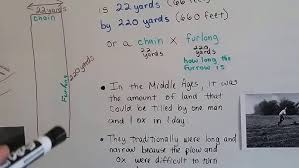 22 yards
chain
Furlong 220 yards
is 22 yards (66 feet)
by 220 yards (660 feet)
or a chain x furlong
22 yards
220 yards
how long the furrow is
• In the Middle Ages, it was
the amount of land that
could be tilled by one man
and 1 ox in 1 day.
• They traditionally were long and
narrow because the plow and
ox were difficult to turn